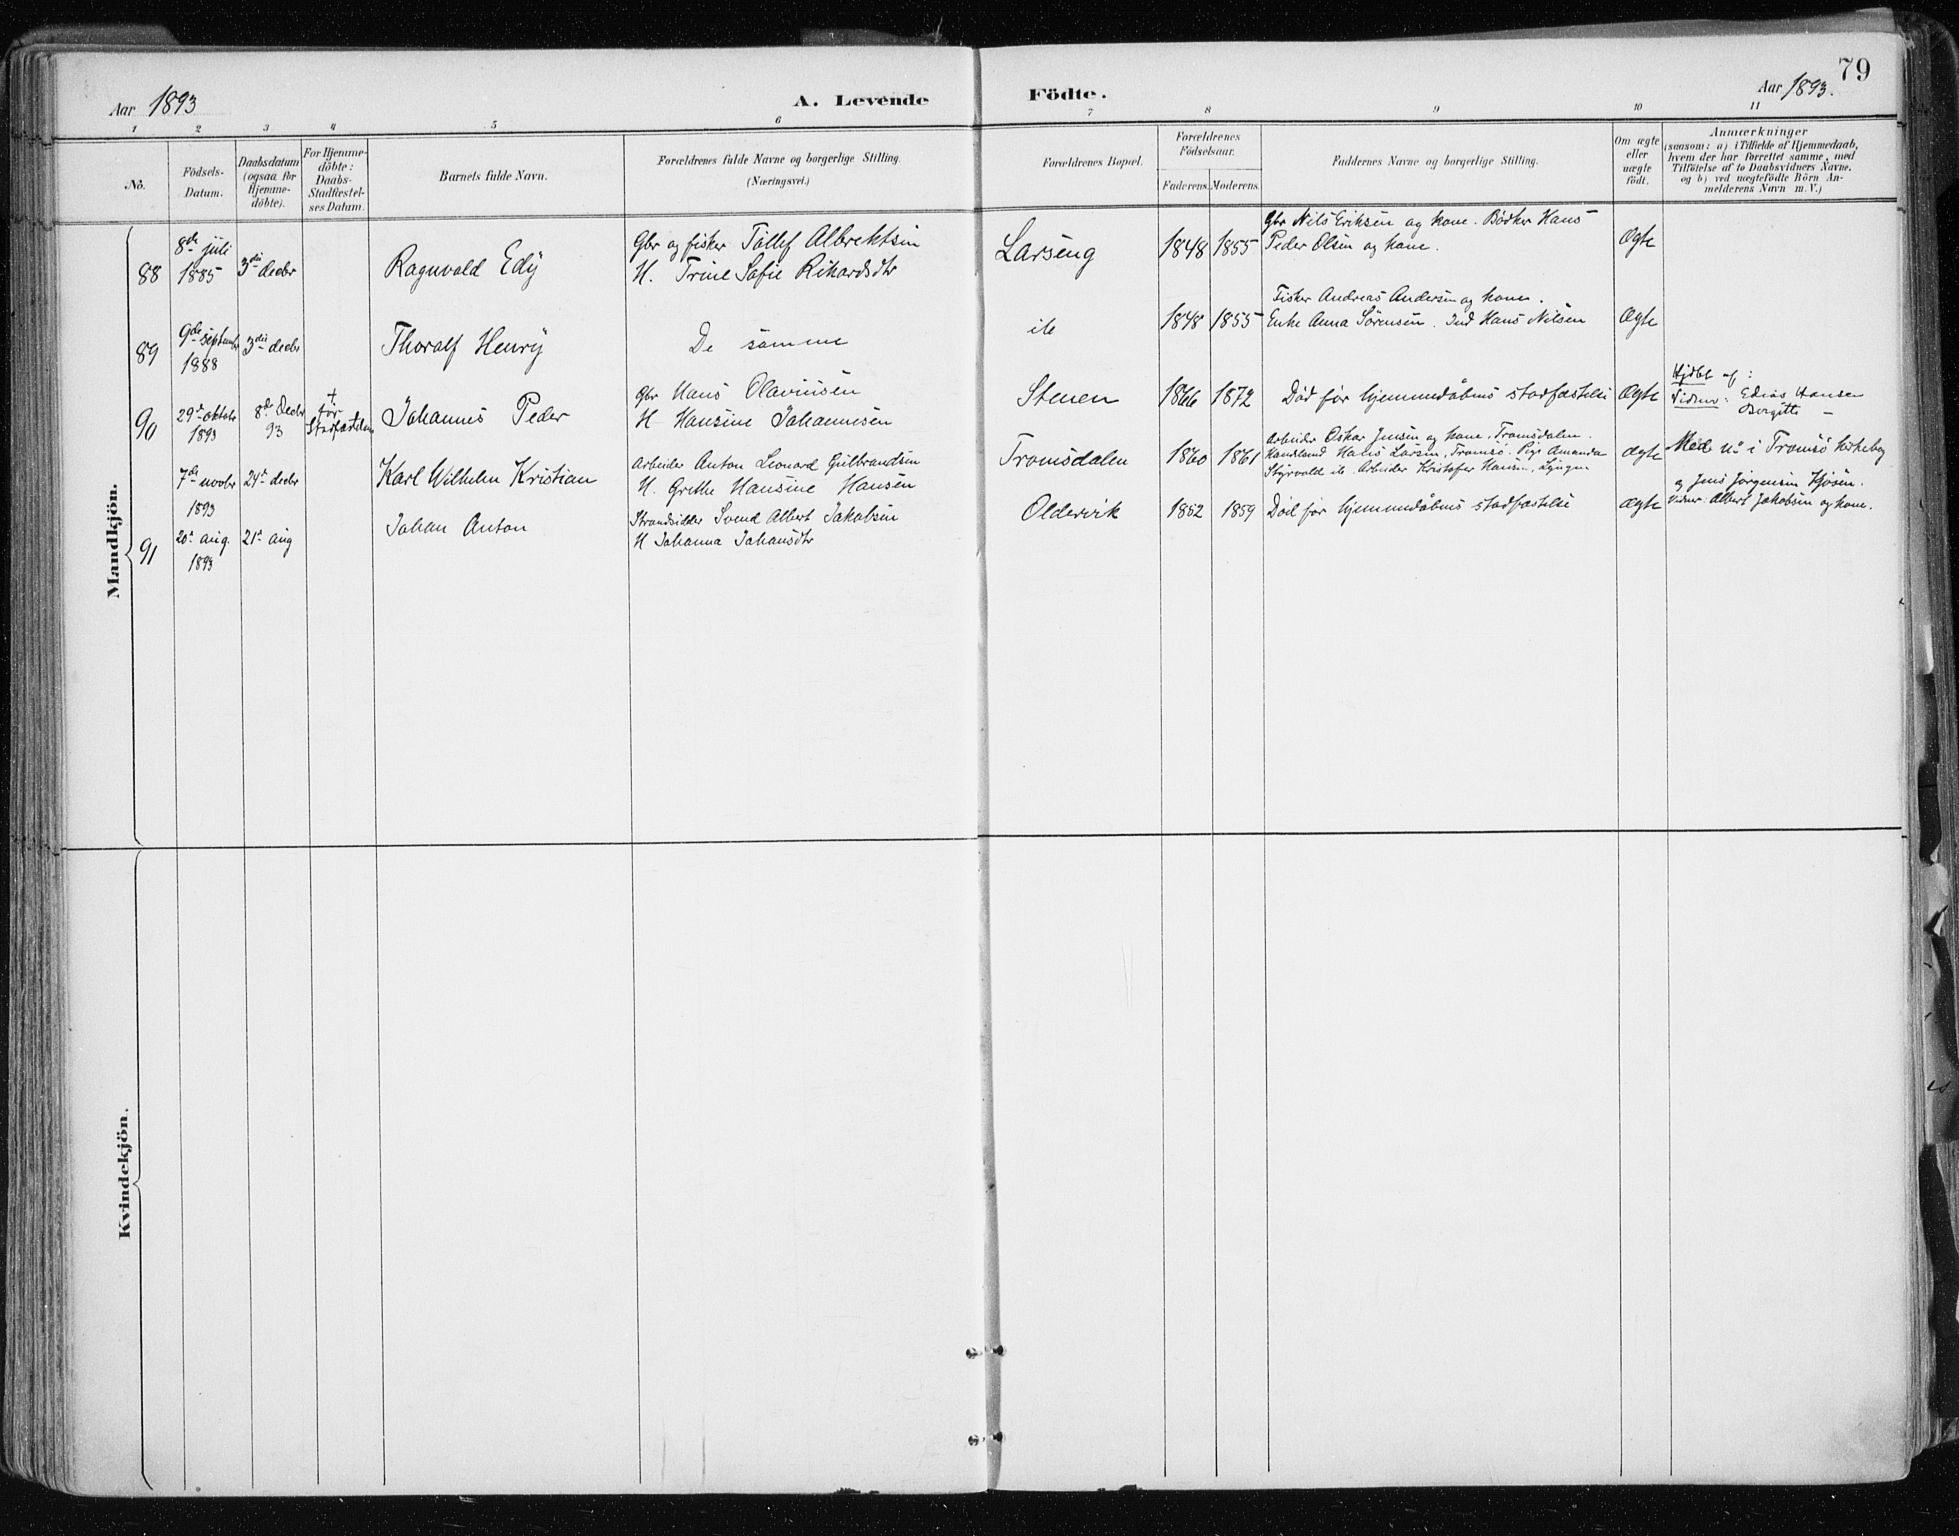 Aar 1893
A. Levende
Födte.
Aar 1893.
79
1 2 3 4 5 6 7 8 9 10 11
No.
Födsels-
Datum.
Daabsdatum
(ogsaa for
Hjemme-
döbte).
For Hjemme-
döbte:
Daabs-
Stadfæstel-
ses Datum.
Barnets fulde Navn.
Forældrenes fulde Navne og borgerlige Stilling.
(Næringsvei.)
Forældrenes Bopæl.
Forældrenes
Födselsaar.
Faderens. Moderens.
Faddernes Navne og borgerlige Stilling.
Om ægte
eller
uægte
födt.
Anmærkninger
(saasom: a) i Tilfælde af Hjemmedaab,
hvem der har forrettet samme, med
Tilföielse af to Daabsvidners Navne,
og b) ved uægtefödte Börn An-
melderens Navn m. V.)
Mandkjön.
88
8de juli
1885
3die decbr
Ragnvald Edy
Gbr og fisker Tollef Albrektsen
H. Trine Sofie Rikardsdtr
Larseng
1848 1855
Gbr Nils Eriksen og kone. Bødker Hans
Peder Olsen og kone.
Ægte
89
9de septembr
1888
3die decbr
Thoralf Henry
De samme
ib
1848 1855
Fisker Andreas Andersen og kone.
Enke Anna Sørensen. Ind Hans Nilsen
Ægte
90
29de oktobr
1893
8de Decbr
93
†
før
Stadfæstelsen
Johannes Peder
Gbr Hans Olavinsen
H Hansine Johannesen
Stenen
1866 1872
Død før hjemmedåbens stadfæstelse
Ægte
Hjdbt af:
Vidner: Edias Hansen
Bergitte —
7de novbr
1893
24de decbr
Karl Wilhelm Kristian
Arbeider Anton Leonard Gulbrandsen
H. Grethe Hansine Hansen
Tromsdalen
1860 1861
Arbeider Oskar Jensen og kone, Tromsdalen.
Handelsmd Hans Larsen, Tromsø. Pige Amanda
Styrvold ib. Arbeider Kristofer Hansen, Lyngen
ægte
Med No i Tromsö kirkebog
91
20de aug
1893
21de aug
Johan Anton
Strandsidder Svend Albert Jakobsen
H Johanna Johansdtr
Oldervik
1852 1859
Død før hjemmedåbens stadfæstelse
ægte
af Jens Jørgensen Kjøsen.
Vidner: Albert Jakobsen og kone.
Kvindekjön.